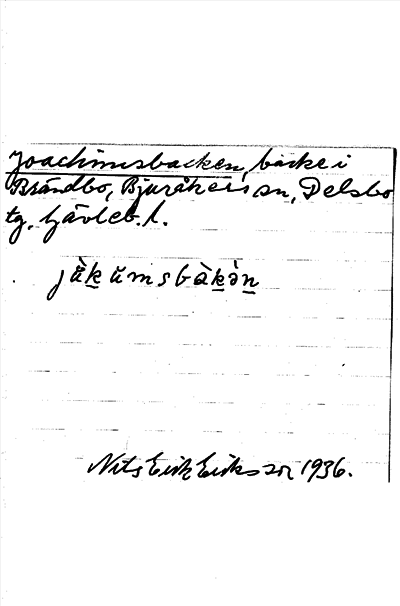 Joachimsbacken, backe i
Brändbo, Bjuråkers sn, Delsbo
tg, Gävleb. l.
jàk̲ŭmsbàk̲ən̲
Nils Erik Eriksson 1936.